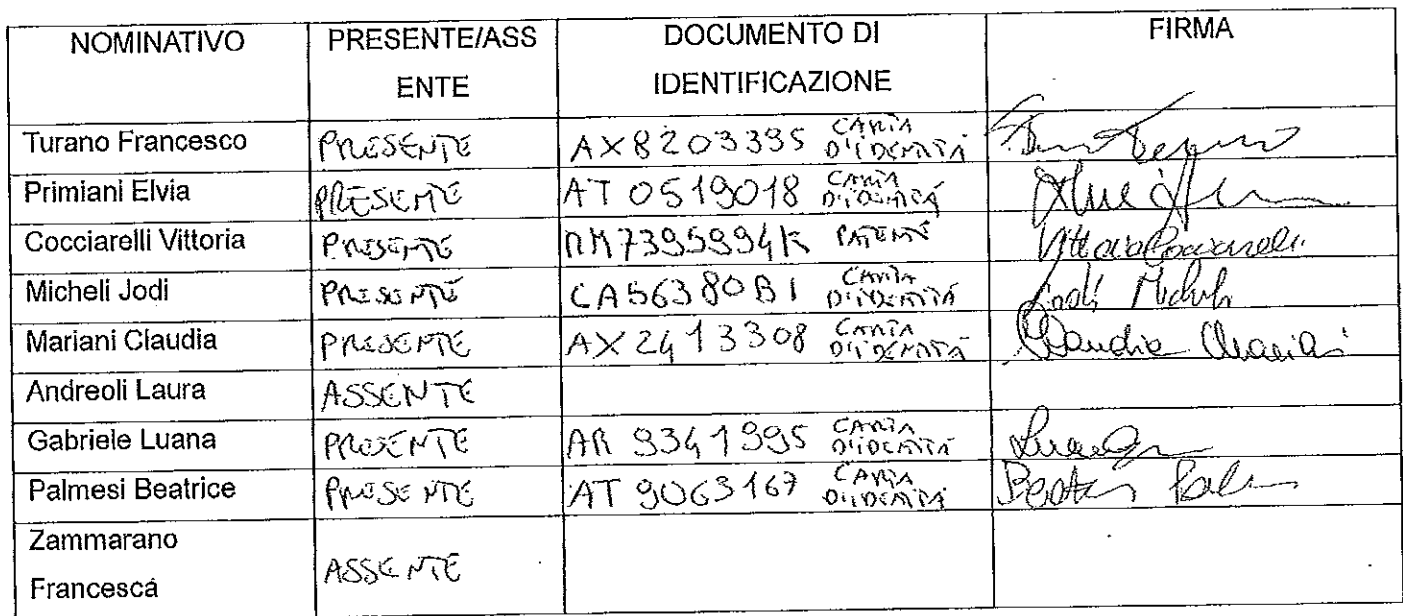 NOMINATIVO PRESENTE/ASS DOCUMENTO DI FIRMA
ENTE IDENTIFICAZIONE
Turano Francesco PRESENTE AX8203335 CARTA
D'IDENTITÀ
Primiani Elvia PRESENTE AT 0519018 CARTA
D'IDENTITÀ
Cocciarelli Vittoria PRESENTE 7395994K PATENTE Vittoria Cocciarelli
Micheli Jodi PRESENTE CA56380BI CARTA Jodi Micheli
D'IDENTITÀ
Mariani Claudia PRESENTE AX 2413308 CARTA Claudia Mariani
D'IDENTITÀ
Andreoli Laura ASSENTE
Gabriele Luana PRESENTE AR 9341995 CARTA
D'IDENTITÀ
Palmesi Beatrice PRESENTE AT 9063167 CARTA
D'IDENTITÀ
Zammarano
Francesca ASSENTE